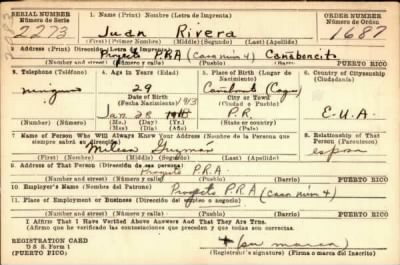 SERIAL NUMBER 1. Name (Print) Nombre (Letra de Imprenta) ORDER NUMBER
Número de Serie Número de Orden
2273 Juan Rivera 1687
(First) (Primer Nombre) (Middle) (Segundo) (Last) (Apellido)
2. Address (Print) Dirección (Letra de Imprenta)
Proyecto P.R.A (Casa núm 4) Cañaboncito
PUERTO RICO
(Number and street) (Número y calle) (Town) (Pueblo) (Barrio)
3. Telephone (Teléfono) 4. Age in Years (Edad) 5. Place of Birth (Lugar de Nacimiento) 6. Country of Citizenship (Ciudadanía)
ninguno 29 Cañabonc (Caguas)
Date of Birth City or Town
(Fecha Nacimiento) 1913 (Ciudad o Pueblo)
Jan. 28 P.R. E-U-A
(Number) (Número) (Mo.) (Day) (Yr.) State or country
(Mes) (Día) (Año) (Estado o país)
7. Name of Person Who Will Always Know Your Address (Nombre de la Persona que siempre sabrá su dirección) 8. Relationship of That Person (Parentesco)
Milesa Guzmán esposa
9. Address of That Person (Dirección de esa persona)
Proyecto P.R.A.
(Number and street) (Número y calle) (Town) (Pueblo) (Barrio) PUERTO RICO
10. Employer's Name (Nombre del Patrono) Proyecto P.R.A (Casa núm 4)
11. Place of Employment or Business (Dirección del empleo o negocio)
(Number and street) (Número y calle) (Town) (Pueblo) (Barrio) PUERTO RICO
I Affirm That I Have Verified Above Answers And That They Are True.
(Afirmo que he verificado las contestaciones que preceden y que todas son correctas.
REGISTRATION CARD
D S S. Form 1
(PUERTO RICO)
+ (su marca)
(Registrant's signature) (Firma o marca del inscrito)